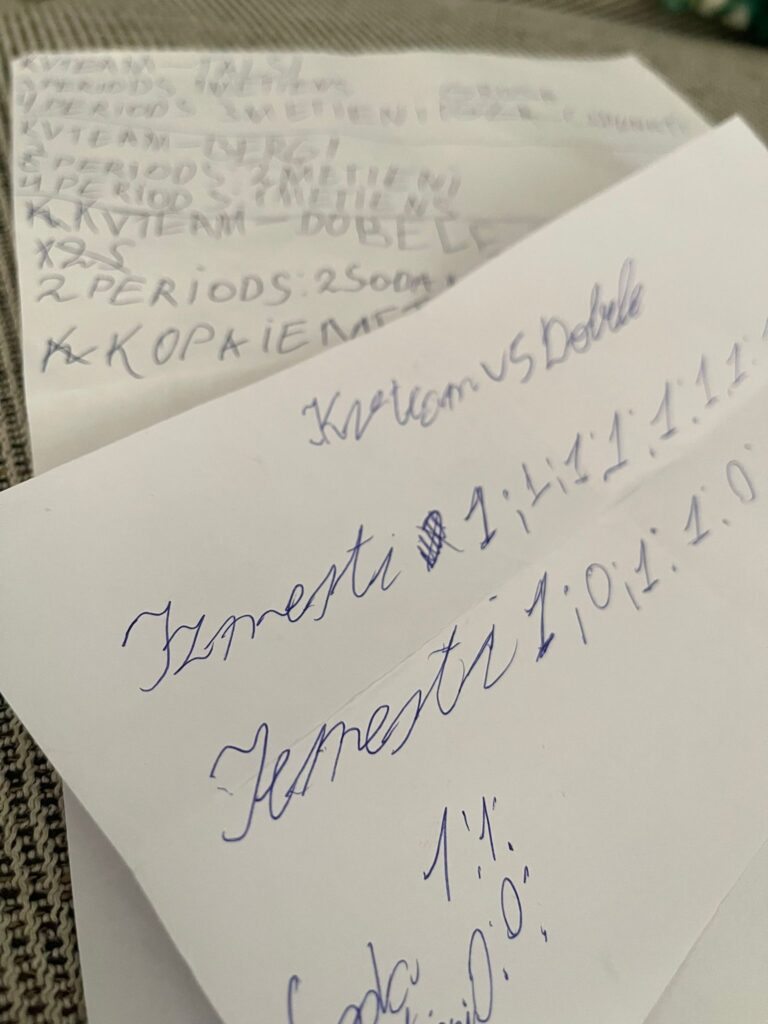 KVTEAM - TALSI
PERIODS METIENS
4 PERIODS 3 METIENI
KVTEAM - BERGI
PERIODS 2METIENI
4 PERIODS 1METIENS
KVTEAM - DOBELE
X2S
2 PERIODS: 2SODA
KOPAIEMET
Kvteam vs Dobele
Izmesti 1;1;1;1;1;1;1
Iemesti 1;0;1;1;0
1;1.
Soda
0;0;